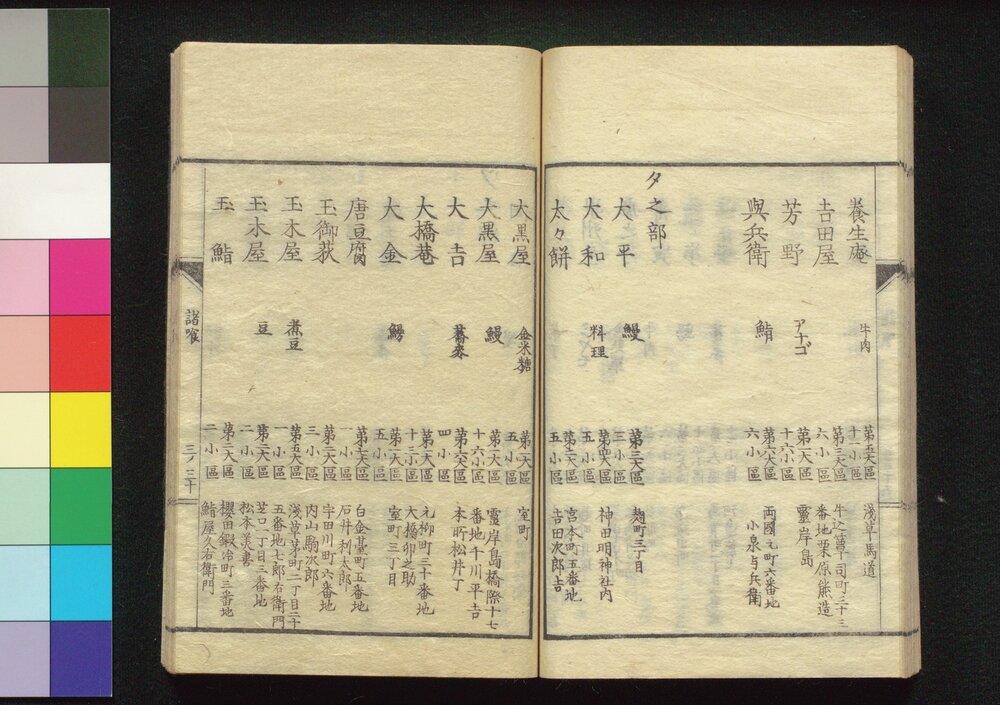 養生庵 牛肉 第五大區 十一小區 淺草馬道
吉田屋 第三大區 六小區 牛込簞司町三十三番地栗原熊造
芳野 アナゴ 第一大區 十六小區 靈岸島
與兵衛 鮨 第六大區 六小區 両國元町六番地 小泉与兵衛
タ之部
大平 鰻 第三大區 三小區 麹町三丁目
大和 料理 第四大區 五小區 神田明神社内
太々餅 第二大區 五小區 宮本町五番地 吉田次郎吉
大黒屋 金米糖 第一大區 五小區 室町
大黒屋 鰻 第一大區 十六小區 靈岸島橋際十七番地千川平吉
大吉 蕎麥 第六大區 四小區 本所松井丁
大橋菴 第一大區 十三小區 元柳町三十番地 大橋卯之助
大金 鰻 第一大區 五小區 室町三丁目
唐豆腐 第七大區 一小區 白金臺町五番地 石井利太郎
玉御荻 第二大區 三小區 宇田川町六番地 内山駒次郎
玉木屋 煮豆 第五大區 一小區 淺草茅町二丁目二十五番地七郎右衛門
玉木屋 豆 第二大區 二小區 芝口一丁目三番地 松本美書
玉鮨 第二大區 二小區 櫻田鍛冶町三番地 鮨屋久右衛門
諸喰
三ノ三十